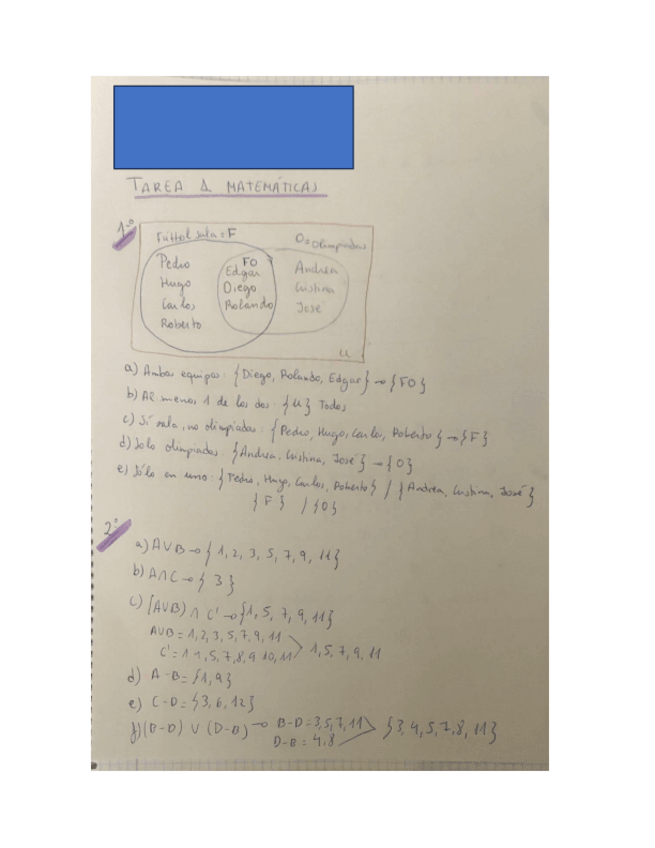 TAREA 1 MATEMÁTICAS
1.º
Fútbol sala = F
O = Olimpiadas
Pedro
Hugo
Carlos
Roberto
FO
Edgar
Diego
Rolando
Andrea
Cristina
José
U
a) Ambos equipos: {Diego, Rolando, Edgar} → {FO}
b) Al menos 1 de los dos: {U} Todos
c) Sí sala, no olimpiadas: {Pedro, Hugo, Carlos, Roberto} → {F}
d) Solo olimpiadas: {Andrea, Cristina, José} → {O}
e) Sólo en uno: {Pedro, Hugo, Carlos, Roberto} / {Andrea, Cristina, José}
{F} / {O}
2º
a) A∪B → {1, 2, 3, 5, 7, 9, 11}
b) A∩C → {3}
c) [A∪B) ∩ C' → {1, 5, 7, 9, 11}
A∪B = 1, 2, 3, 5, 7, 9, 11
C' = 1, 5, 7, 8, 9, 10, 11 > 1, 5, 7, 9, 11
d) A - B = {1, 9}
e) C - D = {3, 6, 12}
f) (B-D) ∪ (D-B) → B-D = 3, 5, 7, 11
D-B = 4, 8 > {3, 4, 5, 7, 8, 11}